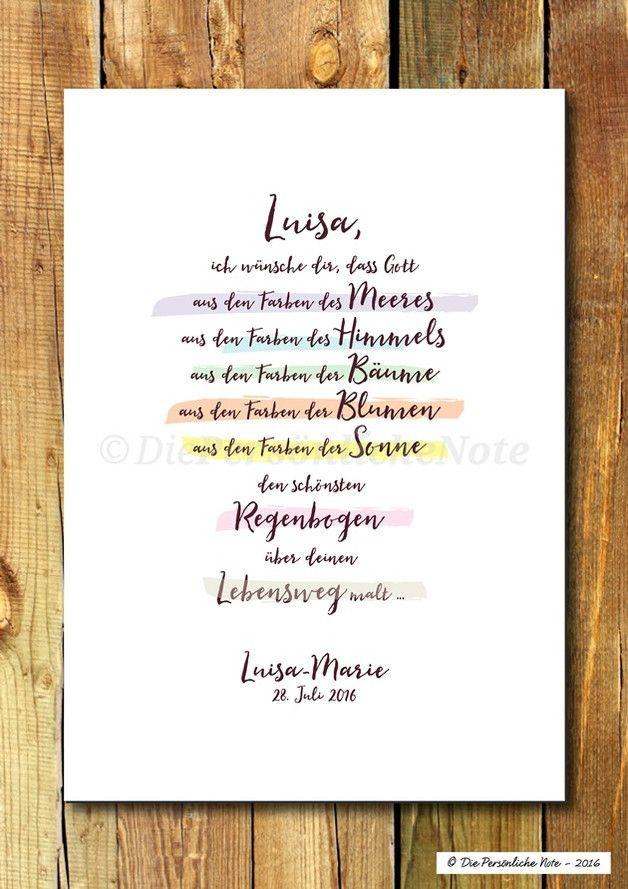 Luisa,
ich wünsche dir, dass Gott
aus den Farben des Meeres
aus den Farben des Himmels
aus den Farben der Bäume
aus den Farben der Blumen
aus den Farben der Sonne
© DiePersönlicheNote
den schönsten
Regenbogen
über deinen
Lebensweg malt ...
Luisa-Marie
28. Juli 2016
© Die Persönliche Note - 2016